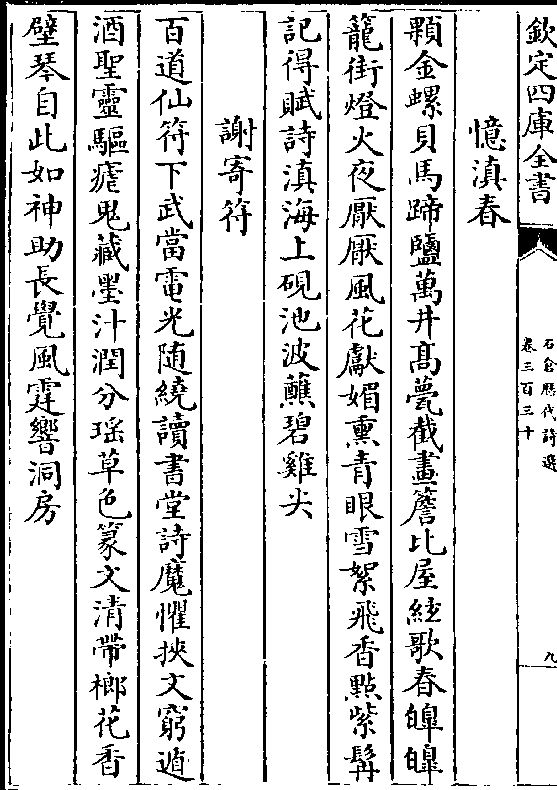 欽定四庫全書
石倉歷代詩選
卷三百三十
九
憶滇春
顆金螺貝馬蹄鹽萬井髙甍截畫簷比屋絃歌春皥皥
籠街燈火夜厭厭風花獻媚熏青眼雪絮飛香點紫髯
記得賦詩滇海上硯池波蘸碧雞尖
謝寄符
百道仙符下武當電光随繞讀書堂詩魔懼挾文窮遁
酒聖靈驅瘧鬼藏墨汁潤分瑶草色篆文清帶榔花香
壁琴自此如神助長覺風霆響洞房